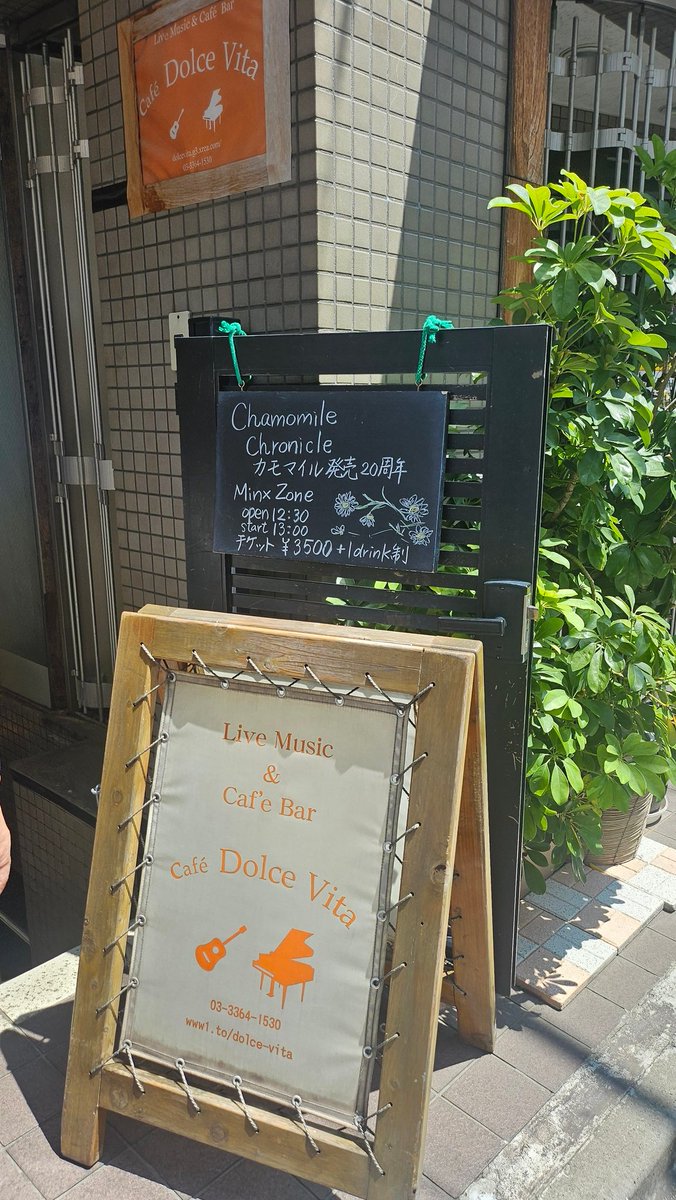 Live Music & Café Bar
Café Dolce Vita
dolcevita.g3.xrea.com/
03-3364-1530
Chamomile
Chronicle
カモマイル発売20周年
Minx Zone
open 12:30
start 13:00
チケット ¥3500+1drink制
Live Music
&
Caf'e Bar
Café Dolce Vita
03-3364-1530
www1.to/dolce-vita